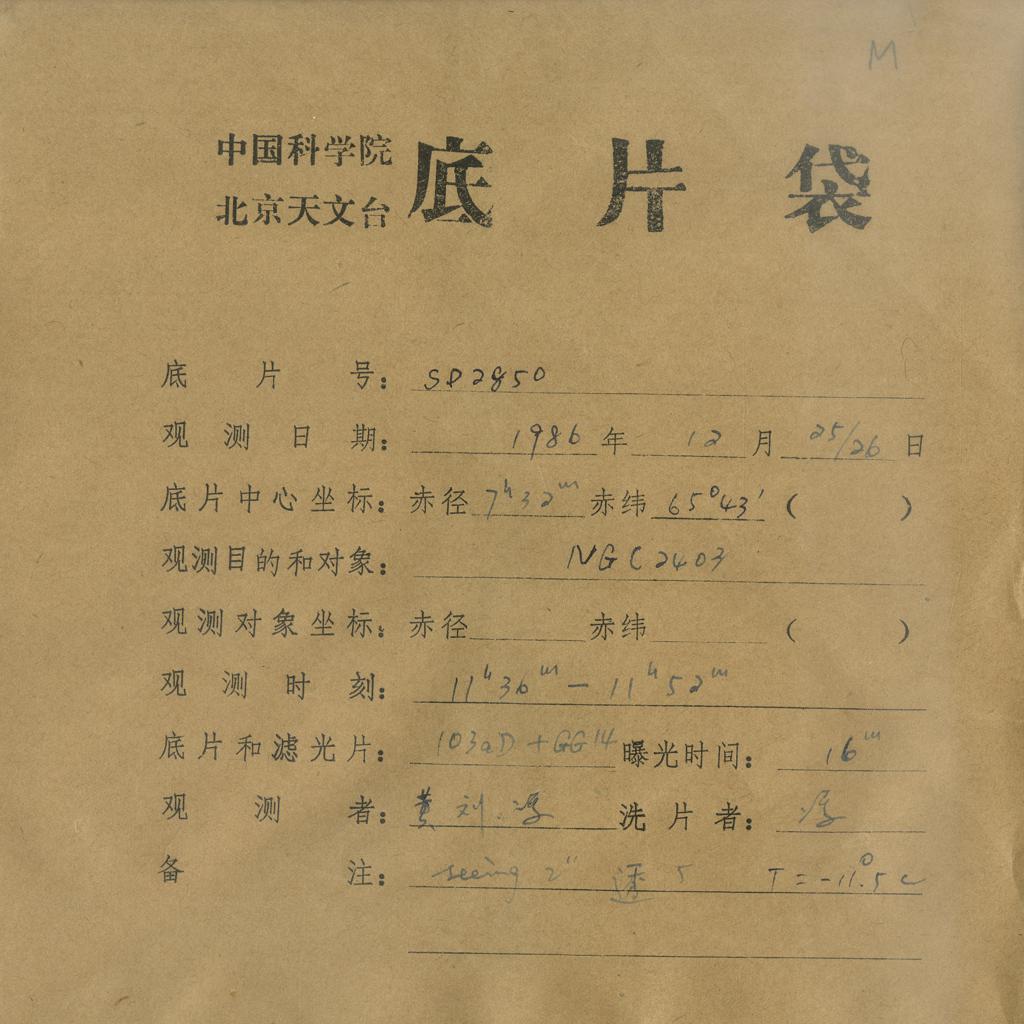 M
中国科学院
北京天文台
底片袋
底片号： SP2850
观测日期： 1986年 12月 25/26日
底片中心坐标：赤径 7ʰ32ᵐ 赤纬 65°43′ （ ）
观测目的和对象： NGC2403
观测对象坐标：赤径 赤纬 （ ）
观测时刻： 11ʰ36ᵐ — 11ʰ52ᵐ
底片和滤光片： 103aD + GG14 曝光时间： 16ᵐ
观测者： 黄 刘 洗片者：
备注： seeing 2″ 透 5 T = -11.5°C